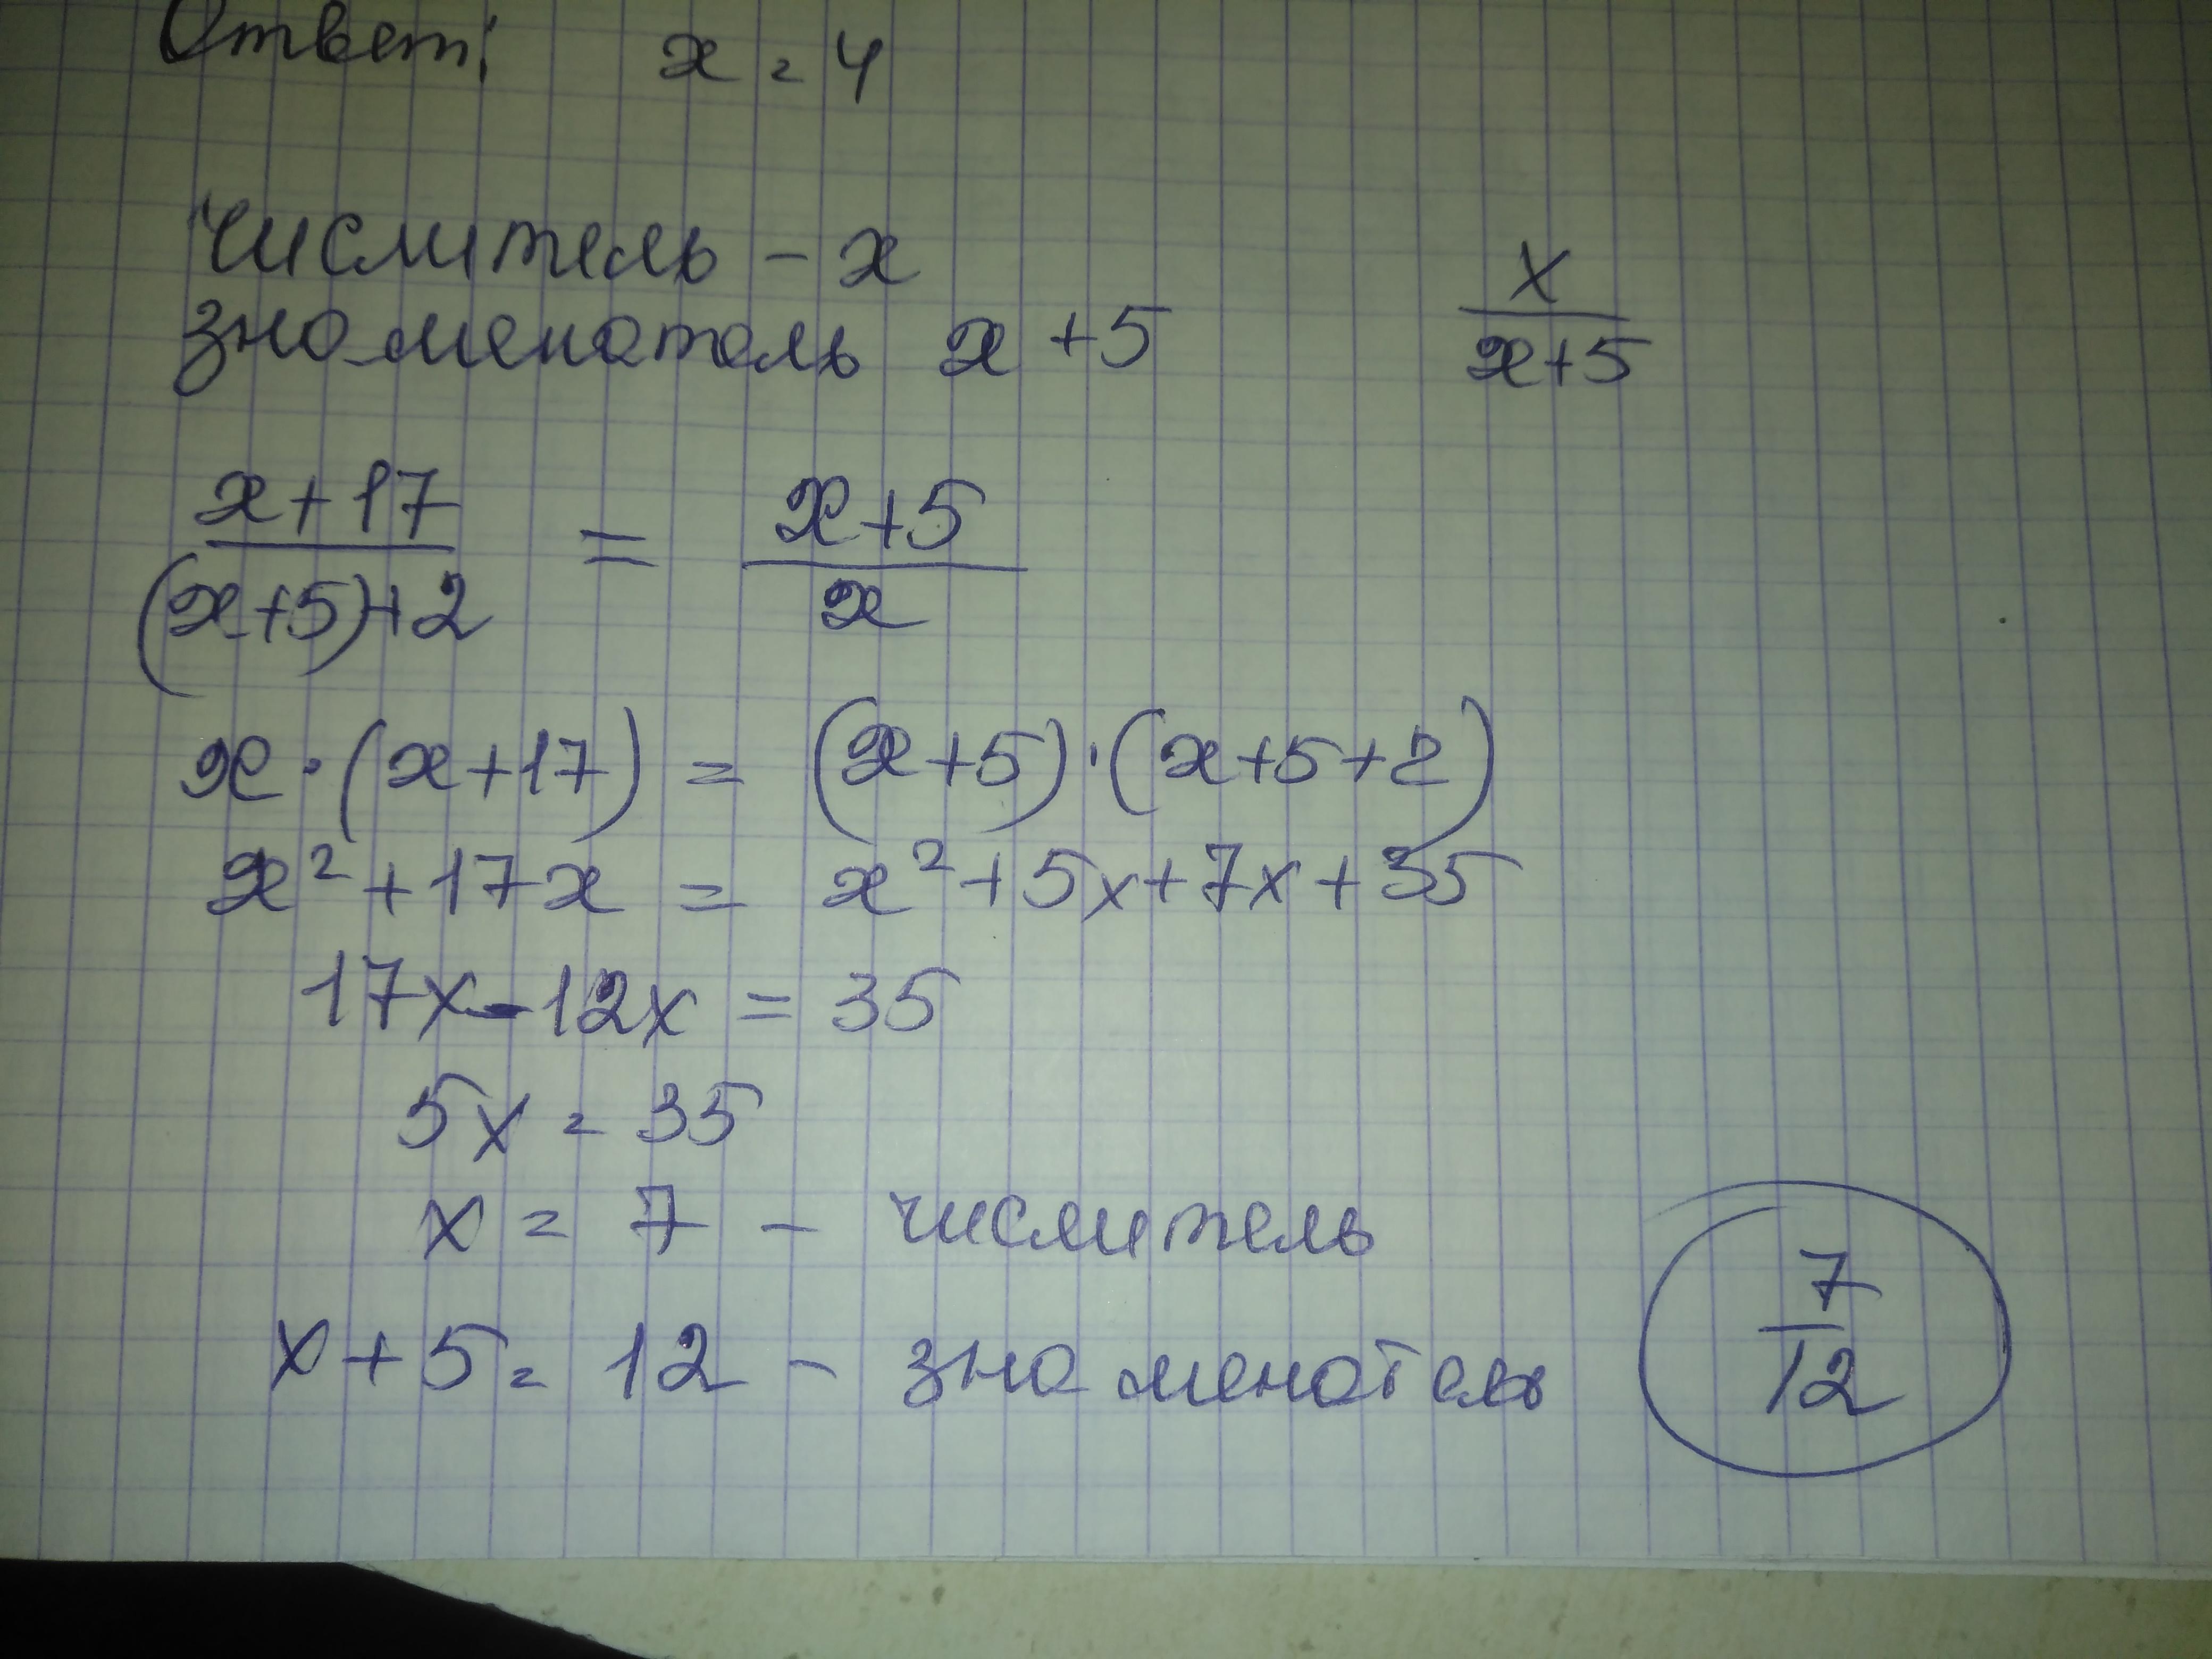 Ответ: x = 4
числитель – x
знаменатель x + 5
x/(x+5)
(x+17)/((x+5)+2) = (x+5)/x
x · (x+17) = (x+5) · (x+5+2)
x² + 17x = x² + 5x + 7x + 35
17x - 12x = 35
5x = 35
x = 7 – числитель
x + 5 = 12 – знаменатель
7/12